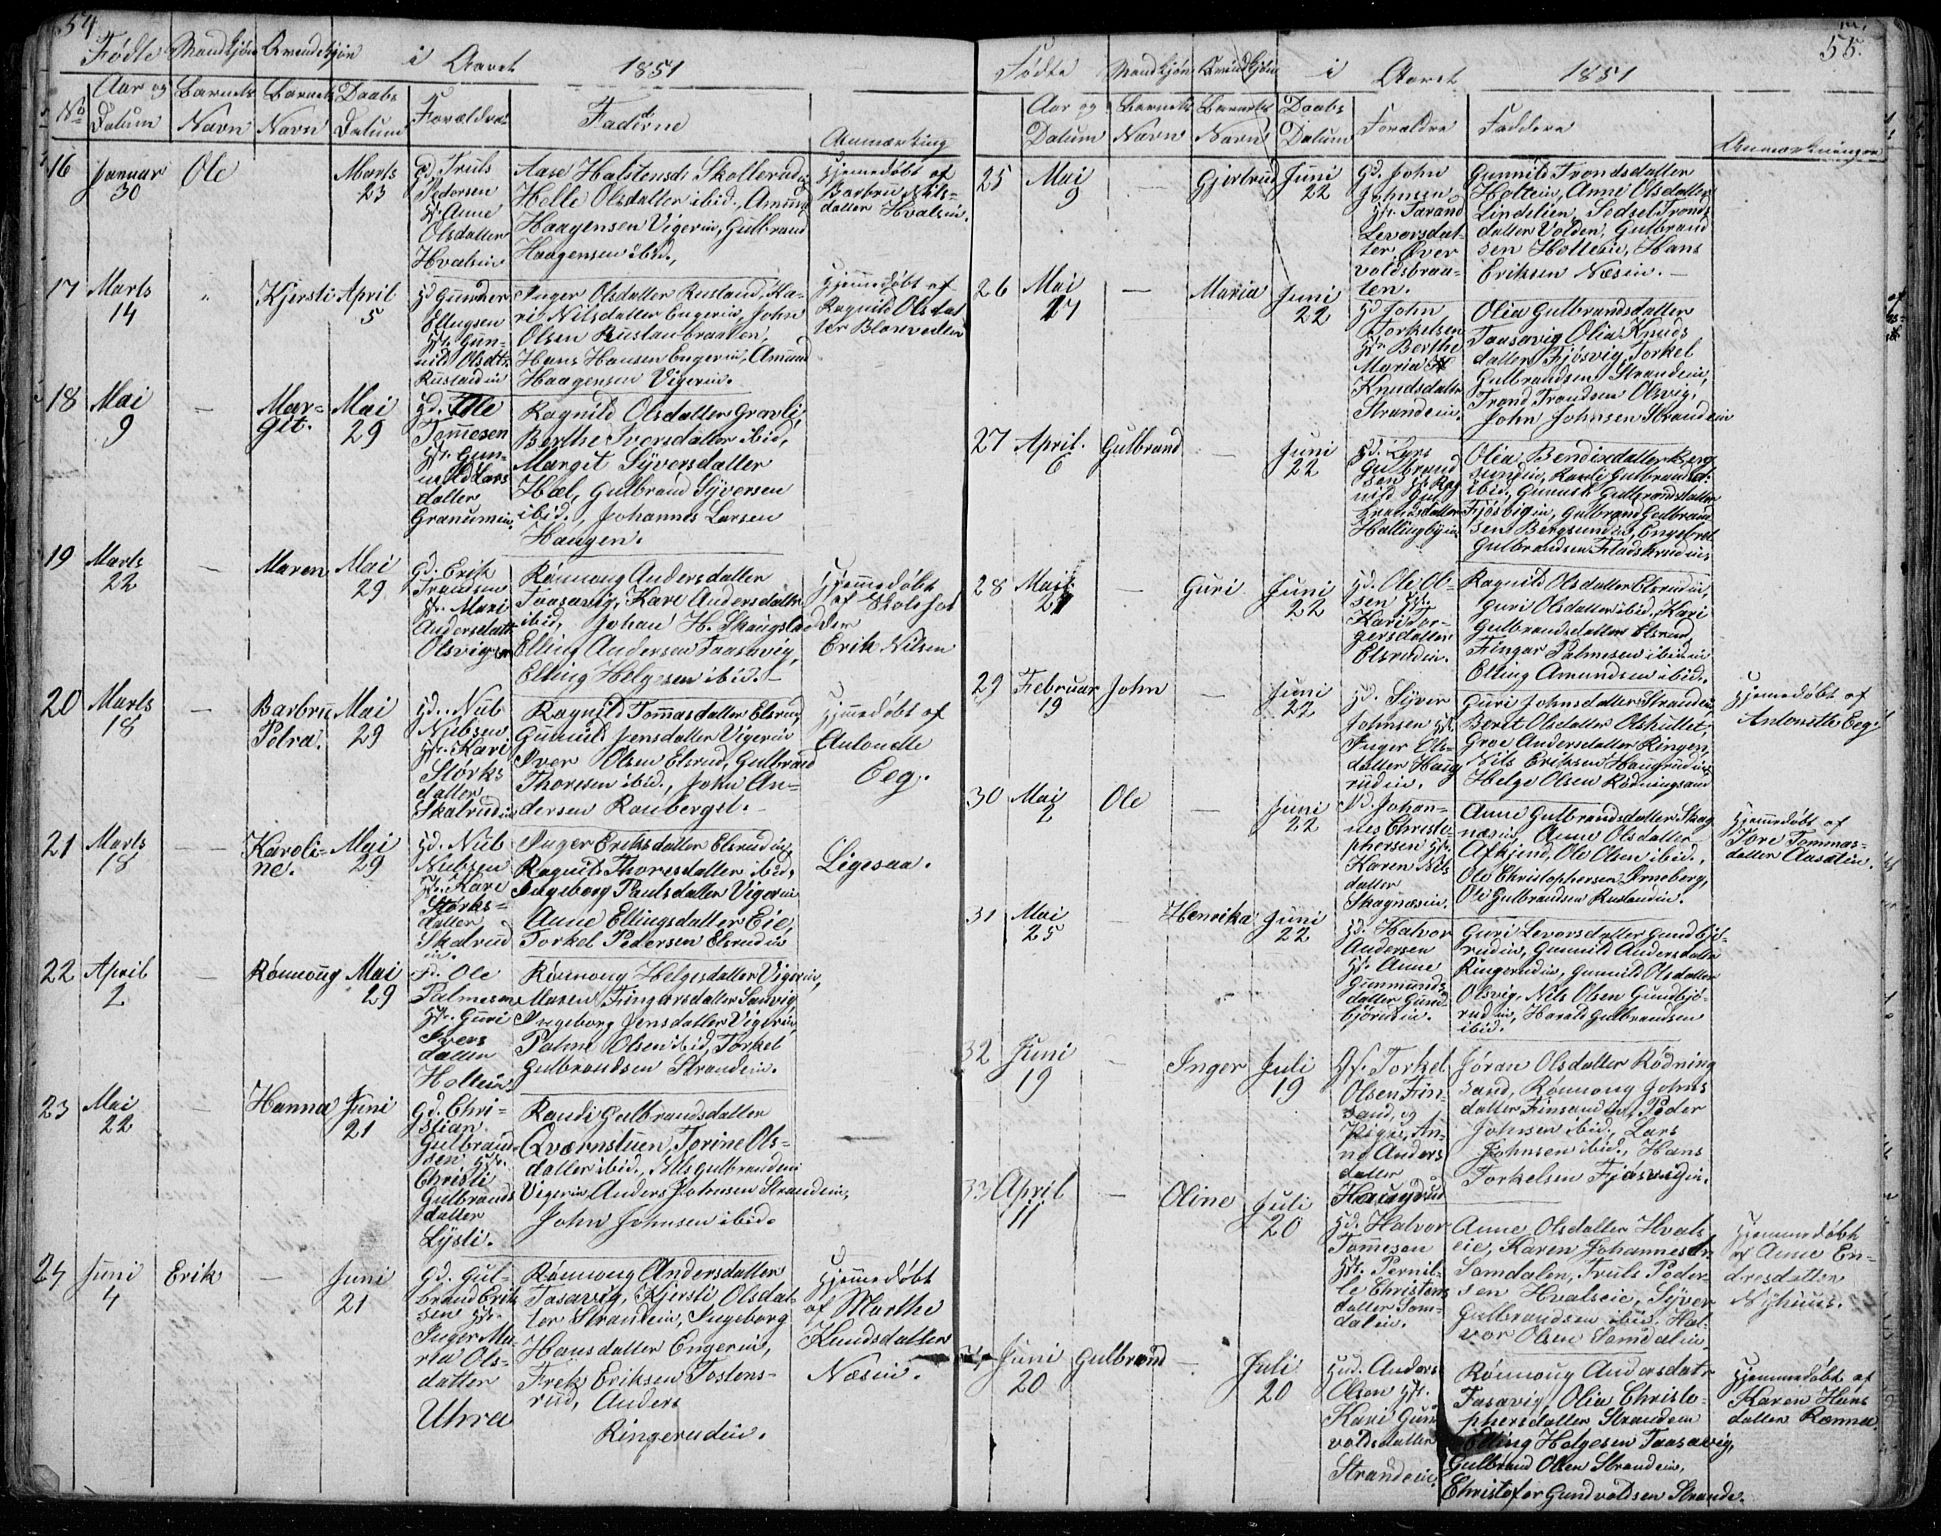 54
Fødte Mandkjøn Qvindekjøn i Aaret 1851
No Aar og Datum Barnets Navn Barnets Navn Daabs Datum Forældre Fadderne Anmærkning
16 Januar 30 Ole Marts 23
Gd Truls
Pedersen
Hst. Anne
Olsdatter
Hvalsein
Aase Halstensdr Skollerud
Helle Olsdatter ibid., Amund
Haagensen Vigerin, Gulbrand
Haagensen ibid.,
Hjemmedøbt af
Barbru Nils-
datter Hvalsein.
17 Marts 14 " Kjersti April 5
Gd Gunner
Ellingsen
Hst. Gun-
nild Olsdtr
Rustadin
Inger Olsdatter Rustand, Ka-
ri Nilsdatter Engerin, John
Olsen Rustanbraaten,
Hans Hansen Engerin, Amund
Haagensen Vigerin.
Hjemmedøbt af
Ragnild Olsdat
ter Blakvedten
18 Mai 9 — Mar-
git. Mai 29
Gd. Ole
Tommesen
Hst. Gun-
nild Lars
datter
Granumin.
Ragnild Olsdatter Gravli,
Berthe Iversdatter ibid,
Margit Syversdatter
Hæl, Gulbrand Syversen
ibid., Johannes Larsen
Haugen.
19 Marts 22 — Maren Mai 29
Gd. Erik
Trondsen
Hst. Mari
Andersdatt
Olsvigen
Rønnoug Andersdatter
Taasavig, Kari Andersdatter
ibid, Johan H. Skaugstad
Elling Andersen Taasavig,
Elling Helgesen ibid. —
Hjemmedøbt
af Skolehol
der
Erik Nilsen
20 Marts 18 — Barbru
Petra. Mai 29
Hd. Nub
Nubsen
Hst. Kari
Størks
datter
Skalrudin
Ragnild Tommasdatter Elsrud,
Gunild Jensdatter Vigerin
Iver Olsen Elsrud, Gulbrand
Thoresen ibid., John An-
dersen Ranbergst. —
Hjemmedøbt af
Antonette
Eeg.
21 Marts 18 — — Karoli-
ne. Mai 29
Hd. Nub
Nubsen
Hst. Kari
Størks-
datter
Skalrud
in.
Inger Eriksdatter Elsrudin,
Ragnild Thoresdatter ibid,
Ingeborg Paulsdatter Vigerin
Anne Ellingsdatter Eie,
Torkel Pedersen Elsrudin
Ligesaa.
22 April 2 — Rønnoug Mai 29
Gd. Ole
Palmesen
Hst. Guri
Ivers
datter
Holtein
Rønnoug Helgesdatter Vigerin,
Maren Fingarsdatter Samvig
Ingeborg Jensdatter Vigerin
Palme Olsen ibid, Torkel
Gulbrandsen Strandein.
23 Mai 22 — Hanna Juni 21
Gd. Chri-
stian
Gulbrand-
sen Hst.
Christi
Gulbrands
datter
Lysli.
Randi Gulbrandsdatter
Qværnstuen, Torine Ols-
datter ibid., Nils Gulbrandsen
Vigerin, Anders Johnsen Strandein,
John Johnsen ibid.
24 Juni 4 Erik — Juni 21
Gd. Gul-
brand Erik
sen Hst.
Inger Ma
ria Ols-
datter
Uhra
Rønnoug Andersdatter
Tasavig, Kjersti Olsdat-
ter Strandein, Ingeborg
Hansdatter Engerin,
Erik Eriksen Tostens-
rud, Anders
Ringerudin.
Hjemmedøbt
af Marthe
Knudsdatter
Næsein.
55.
Fødte Mandkjøn Qvindekjøn i Aaret 1851
Aar og Datum Barnets Navn Barnets Navn Daabs Datum Forældre Faddere Anmærkninger
25 Mai 9 Gjertrud Juni 22
Gd. John
Johnsen
Hst. Tarand
Levorsdat-
ter Over
voldsbraa-
ten.
Gunnild Trondsdatter
Holtein, Anne Olsdatter
Lindelien, Sedsel Tronds
datter Volden, Gulbrand
sen Holtein, Hans
Eriksen Næsin. —
26 Mai 17 — Maria Juni 22
Gd John
Torkelsen
Hst. Berthe
Maria
Knudsdatter
Strandein.
Olia Gulbrandsdatter
Taasavig, Olia Knuds
datter Fjøsvig, Torkel
Gulbrandsen Strandein,
Trond Trondsen Olsvig,
John Johnsen Strandein
27 April 6 Gulbrand — Juni 22
Gd. Lars
Gulbrand
sen Hst. Rag
nild Gul
brandsdatter
Hallingbyin
Olia Bendixdatter Berg
sundin, Randi Gulbrandsdt.
ibid, Gunild Gulbrandsdatter
Fjøsvigin, Gulbrand Gulbrand
sen Bergsundin, Engebret
Gulbrandsen Fladskrudin
28 Mai 21 — Guri Juni 22
Hd. Ole Ol-
sen Hst.
Kari Tor-
gersdatter
Elsrudin.
Ragnild Olsdatter Elsrudin,
Guri Olsdatter ibid, Kari
Gulbrandsdatter Elsrud,
Fingar Palmesen ibid.
Elling Amundsen ibid.
29 Februar 19 John — Juni 22
Hd. Syver
Johnsen Hst.
Inger Ols-
datter Haug
rudin.
Guri Johnsdatter Strandein
Berit Olsdatter Olshullet,
Groe Andersdatter Ringen,
Nils Eriksen Haugrudin,
Helge Olsen Rødningsand
Hjemmedøbt af
Antonette Eeg.
30 Mai 2 Ole — Juni 22
Hd. Johan-
nes Christo
phersen Hst.
Karen Nils
datter
Skagnæsin.
Anne Gulbrandsdatter Skag
næsin Anne Olsdatter
Afkjend, Ole Olsen ibid.,
Ole Christophersen Arneberg,
Ole Gulbrandsen Rustandin.
Hjemmedøbt af
Tore Tommas-
datter Aasætin.
31 Mai 25 — Henrika Juni 22
Hd. Halvor
Andersen
Hst. Anne
Gunmunds
datter Gund
bjørudin.
Guri Levorsdatter Gundbjø-
rudin, Gunild Andersdatter
Ringerudin, Gunnild Olsdatter
Olsvig, Nils Olsen Gundbjø-
rudin, Harald Gulbrandsen
ibid.
32 Juni 19 — Inger Juli 19
Gs. Torkel
Olsen Fin-
sand, og
Pige, An-
ne Anders
datter
Haugrud
Jøran Olsdatter Rødning
sand, Rønnoug Johns
datter Finsandin, Peder
Johnsen ibid., Lars
Johnsen ibid., Hans
Torkelsen Fjøsvigin.
33 April 11 — Oline Juli 20
Hd. Halvor
Tommesen
Hst. Pernil-
le Christens
datter Sam-
dalen.
Anne Olsdatter Hvals
eie, Karen Johannesdr.
Samdalen, Truls Peder-
sen Hvalseie, Syver
Gulbrandsen ibid. Hal-
vor Olsen Samdalin
Hjemmedøbt
af Anne En-
dresdatter
Nyhuus.
34 Juni 20 Gulbrand — Juli 20
Hd. Anders
Olsen Hst.
Kari Gun
voldsdatter
Strandein.
Rønnoug Andersdatr
Tasavig, Olia Christo-
phersdatter Strandein
Elling Helgesen Taasavig,
Gulbrand Olsen Strandein,
Christofer Gundvoldsen Strande.
Hjemmedøbt af
Karen Hans
datter Rænna